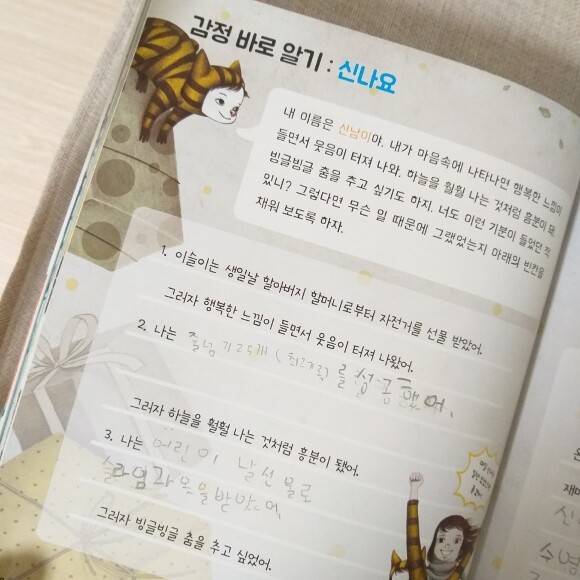 감정 바로 알기 : 신나요
내 이름은 신남이야. 내가 마음속에 나타나면 행복한 느낌이
들면서 웃음이 터져 나와. 하늘을 훨훨 나는 것처럼 흥분이 돼.
빙글빙글 춤을 추고 싶기도 하지. 너도 이런 기분이 들었던 적
있니? 그렇다면 무슨 일 때문에 그랬었는지 아래의 빈칸을
채워 보도록 하자.
1. 이슬이는 생일날 할아버지 할머니로부터 자전거를 선물 받았어.
그러자 행복한 느낌이 들면서 웃음이 터져 나왔어.
2. 나는 줄넘기 2 (최고기록)를 성공했어.
그러자 하늘을 훨훨 나는 것처럼 흥분이 됐어.
3. 나는 어린이 날 선물로
슬라임과 옷을 받았어.
그러자 빙글빙글 춤을 추고 싶었어.
재미
수영